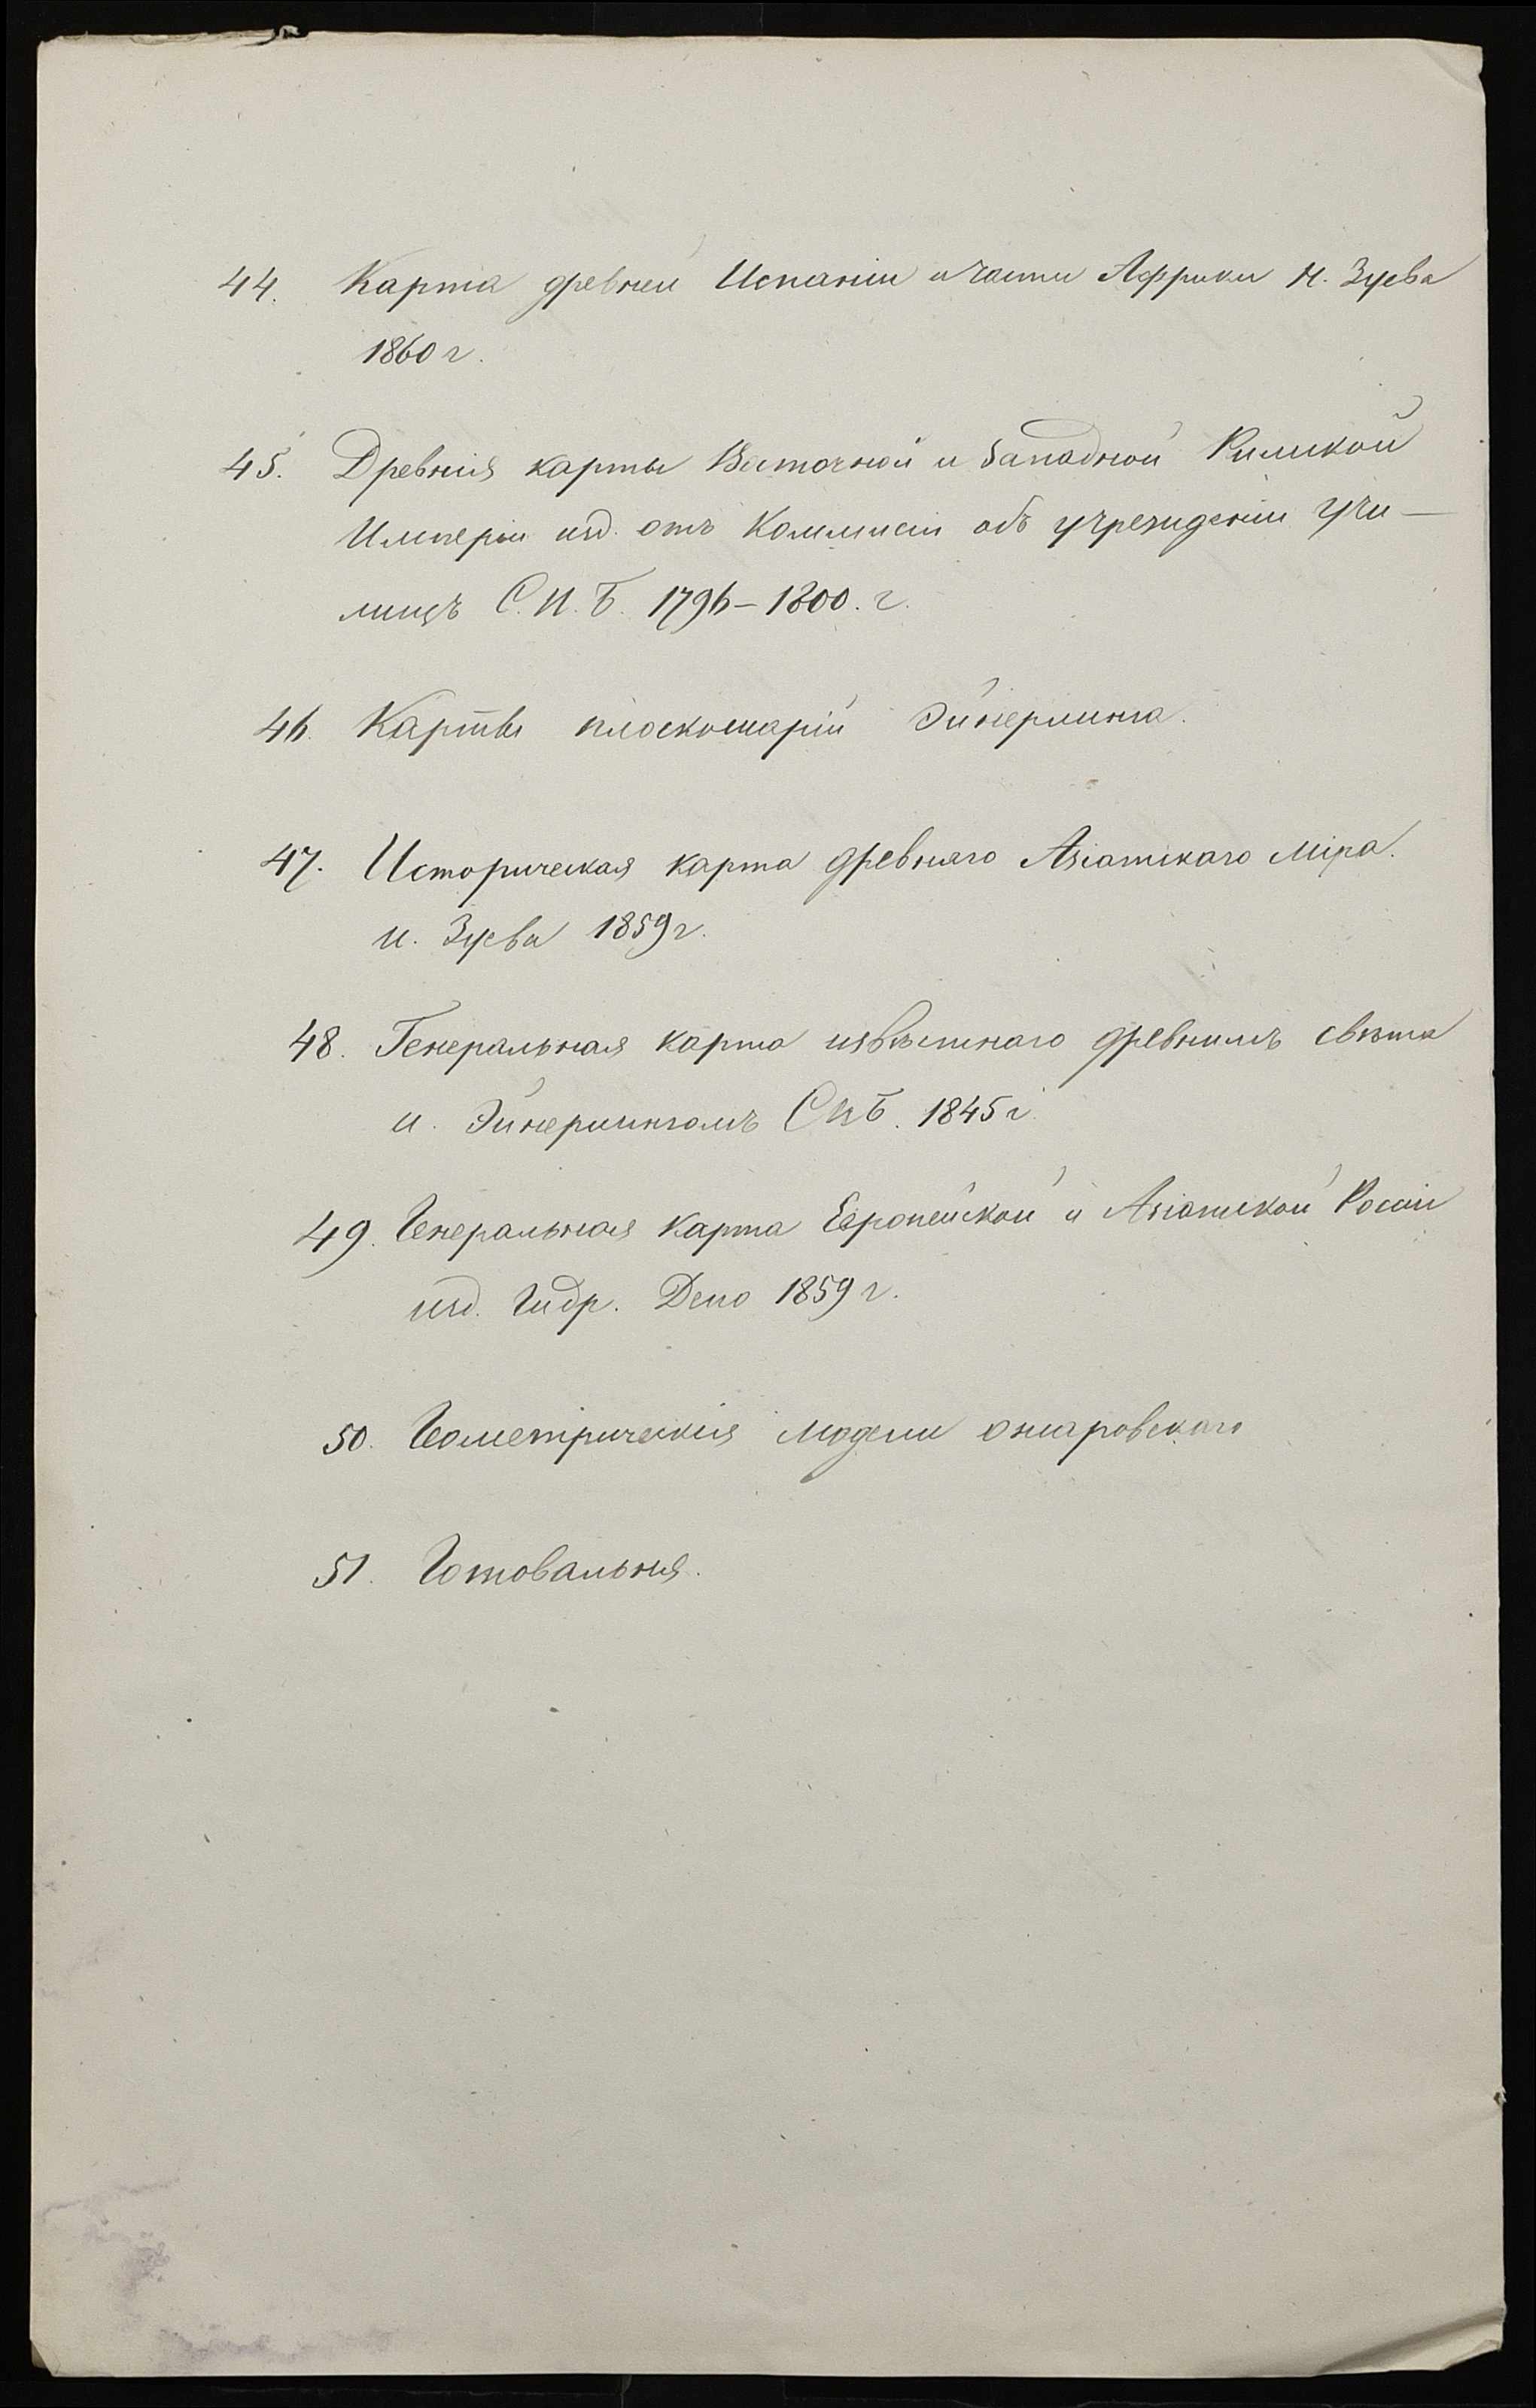 44. Карта древней Испаніи и части Африки Н. Зуева
1860 г.
45. Древнія карты Восточной и Западной Римской
Имперіи изд. отъ Коммисіи объ учрежденіи Учи-
лищъ С.П.Б. 1796-1800. г.
46. Карты плоскошарій Эйнерлинга.
47. Историческая карта древняго Азіатскаго Міра.
и. Зуева 1859 г.
48. Генеральная карта извѣстнаго древнимъ свѣта
и. Эйнерлингомъ СПБ. 1845 г
49. Генеральная карта Европейской и Азіатской Росіи
изд. Гидр. Депо 1859 г.
50. Геометрическія Модели
51. Готовальня.